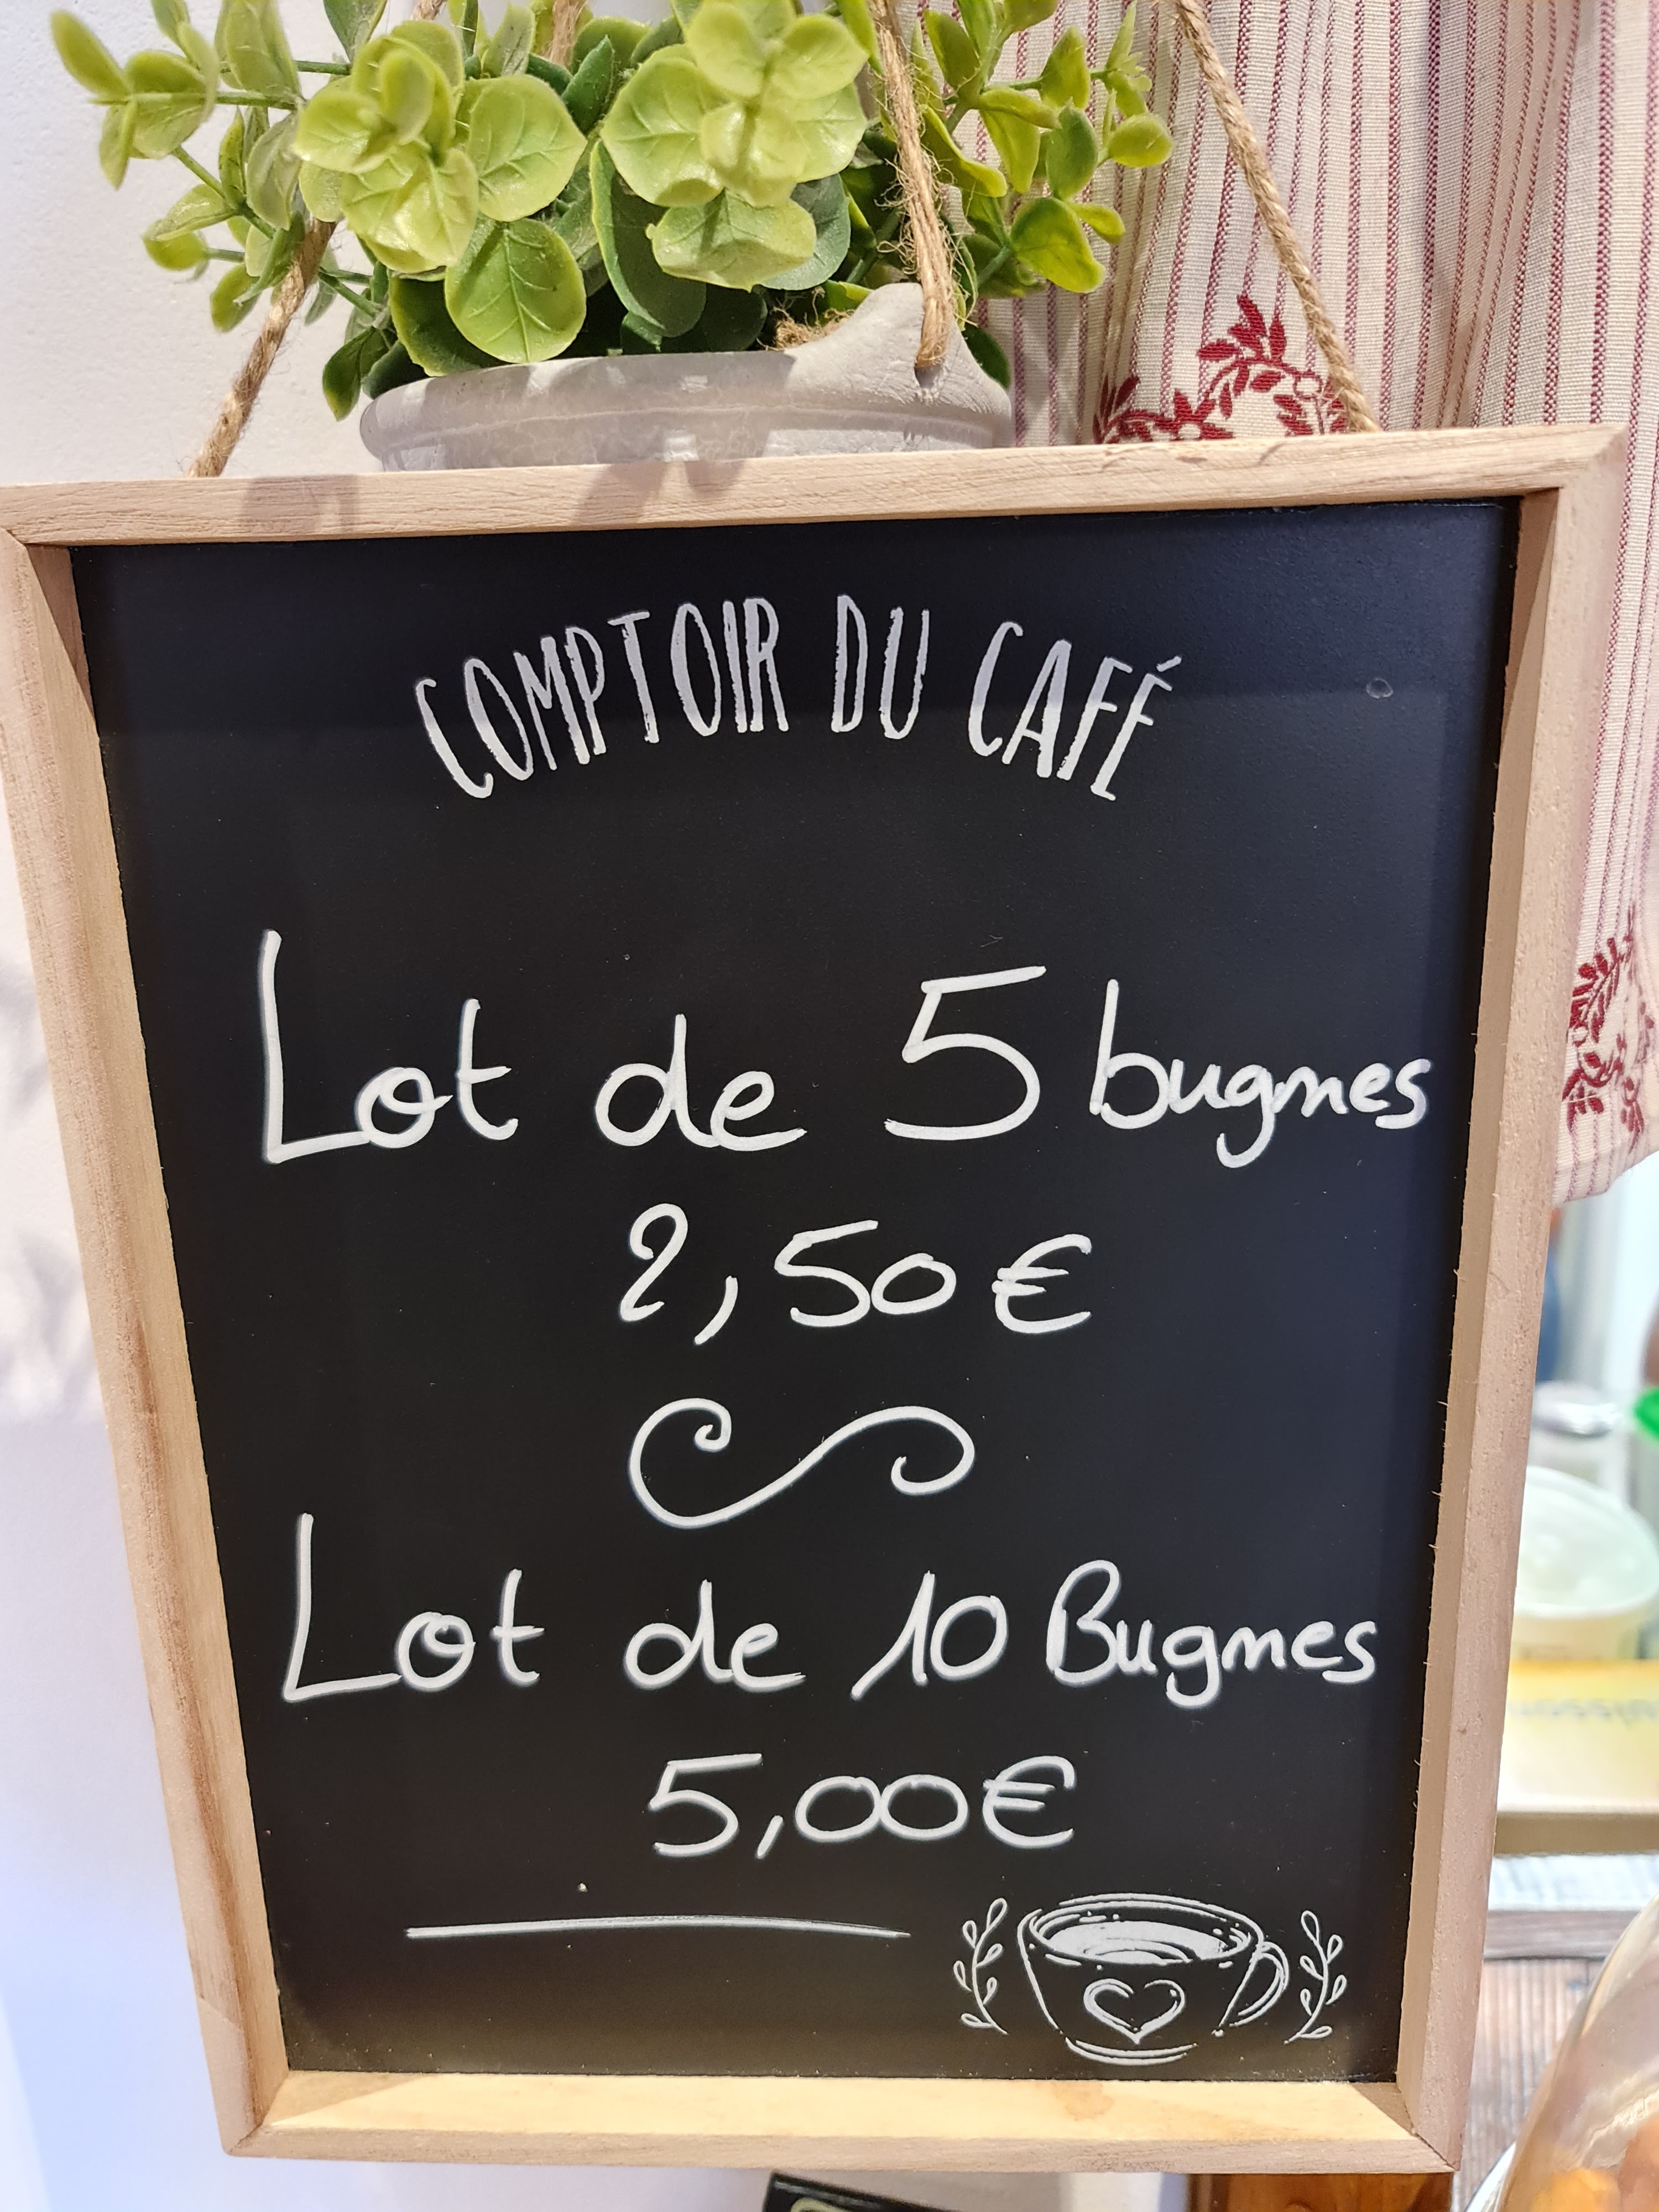 COMPTOIR DU CAFÉ
Lot de 5 bugnes
2,50€
Lot de 10 Bugnes
5,00€